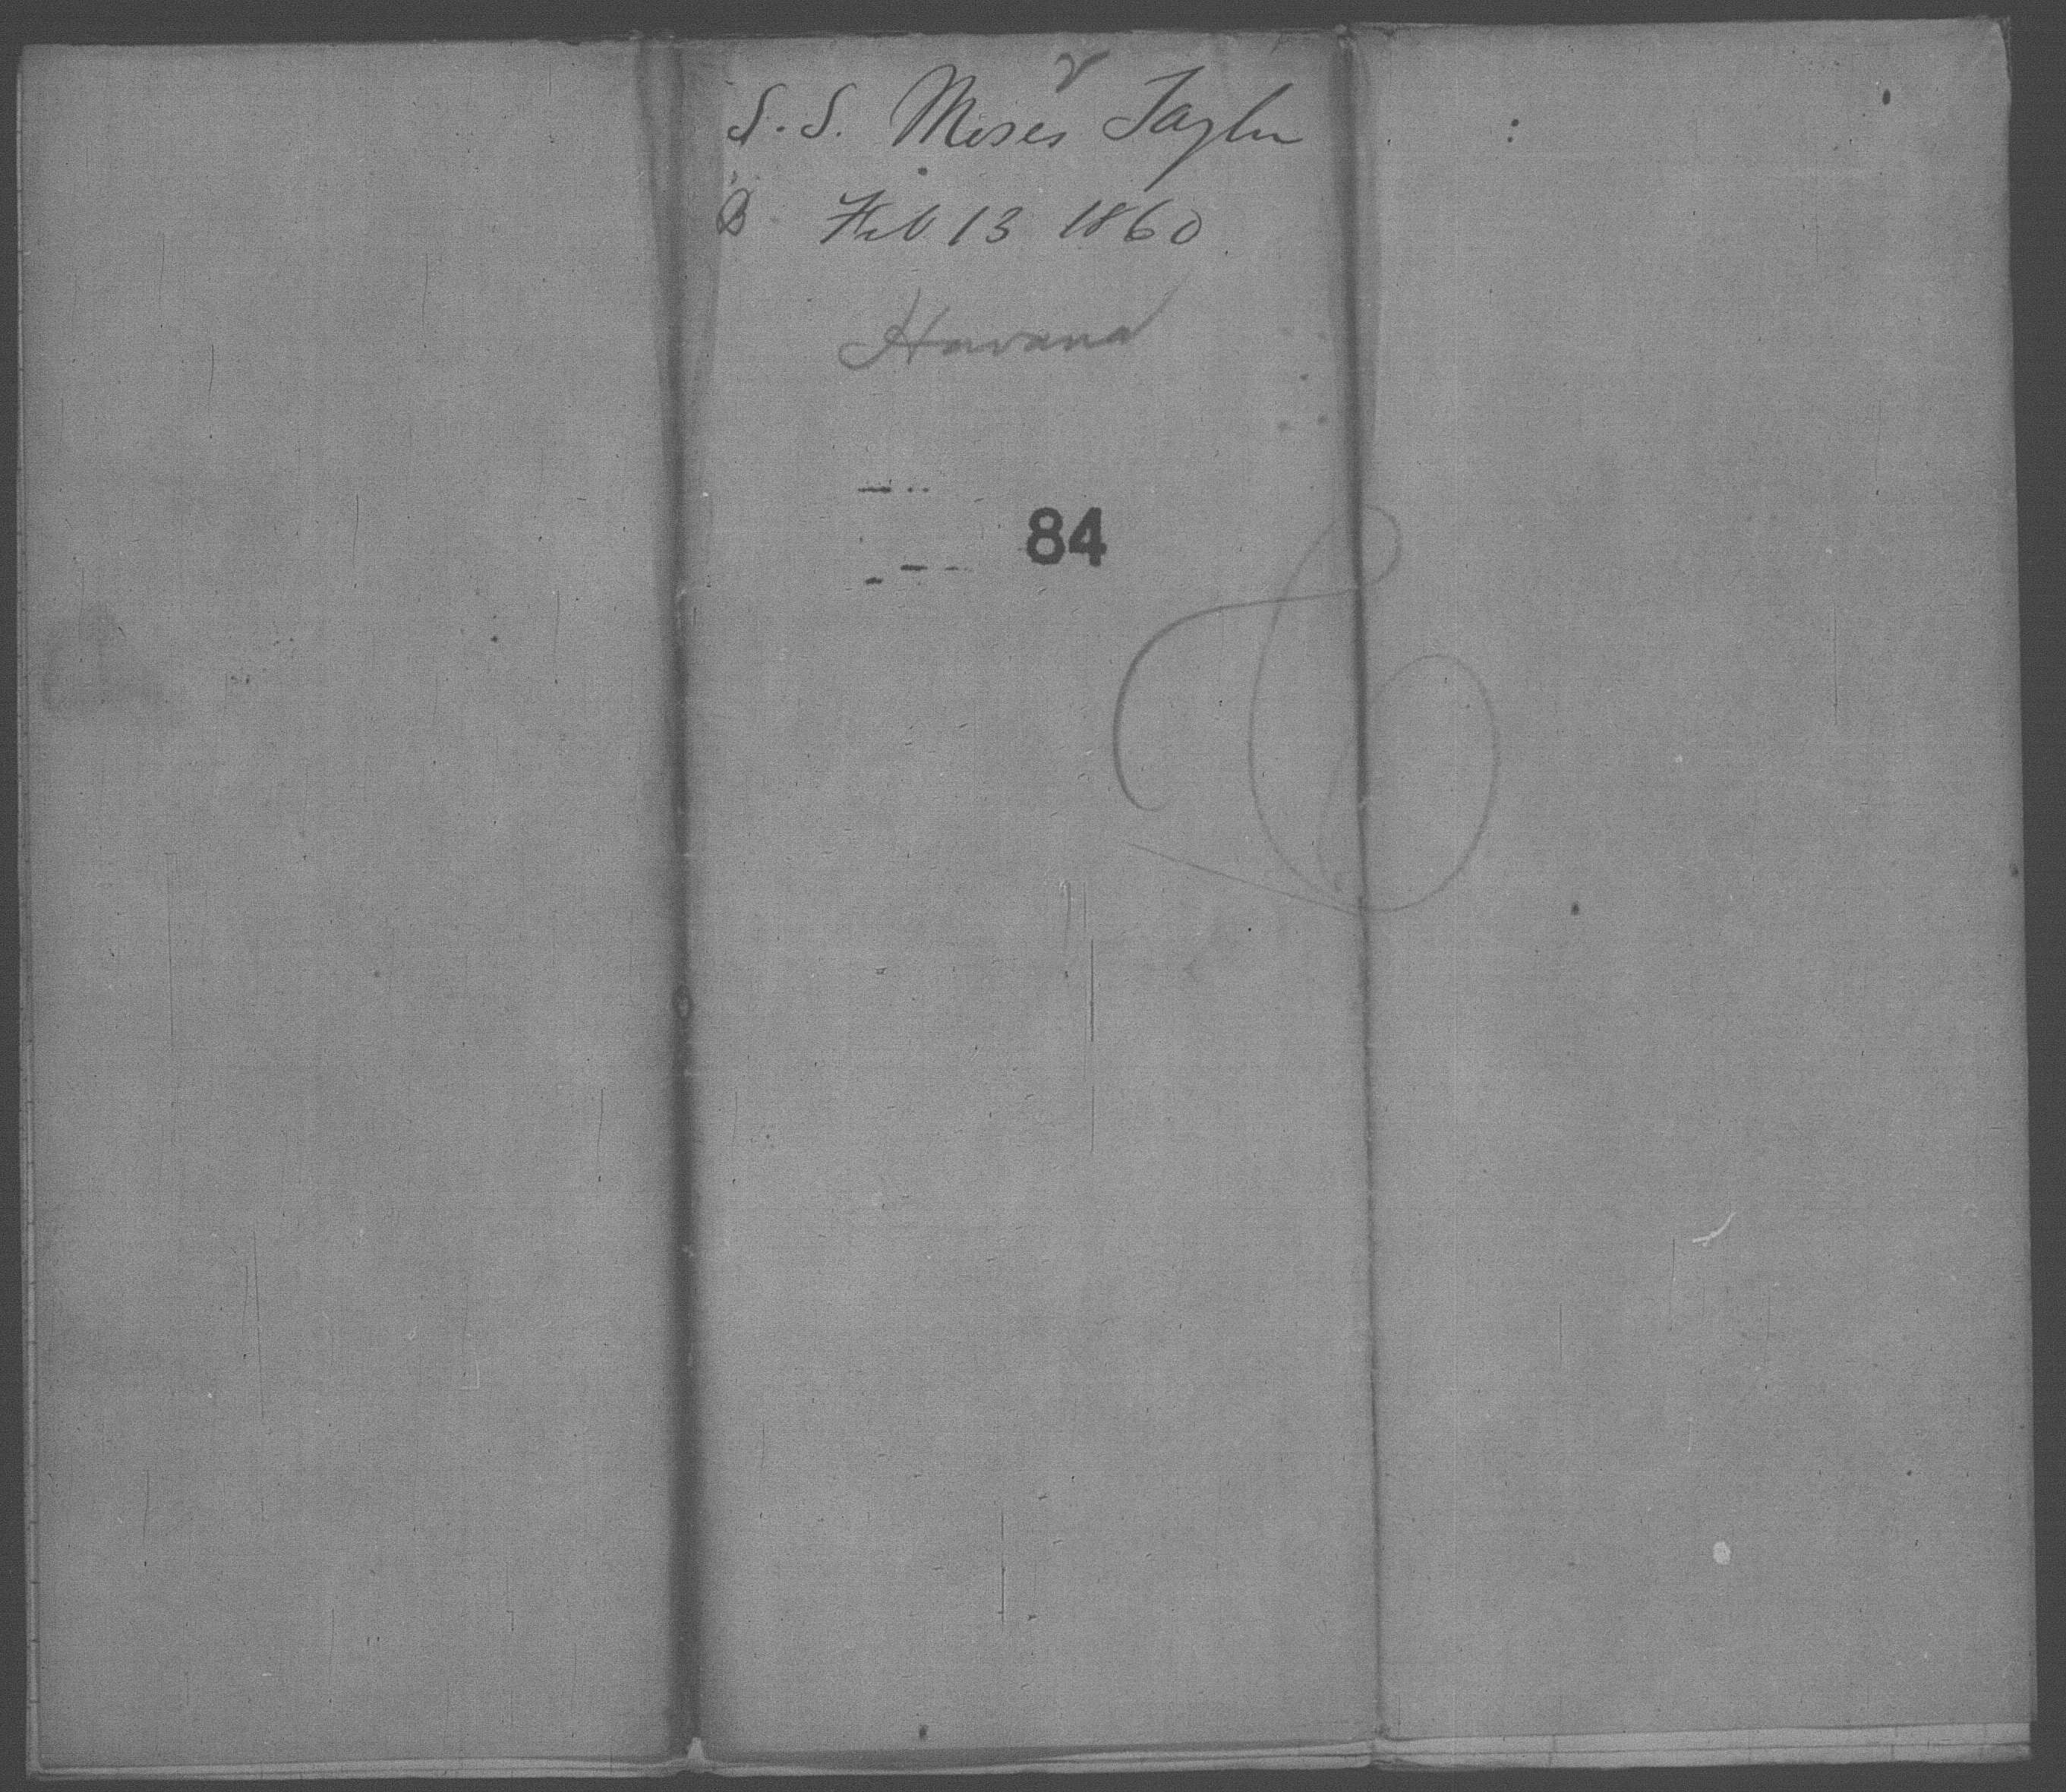 S. S. Moses Taylor
D. Feb 13 1860
Havana
84